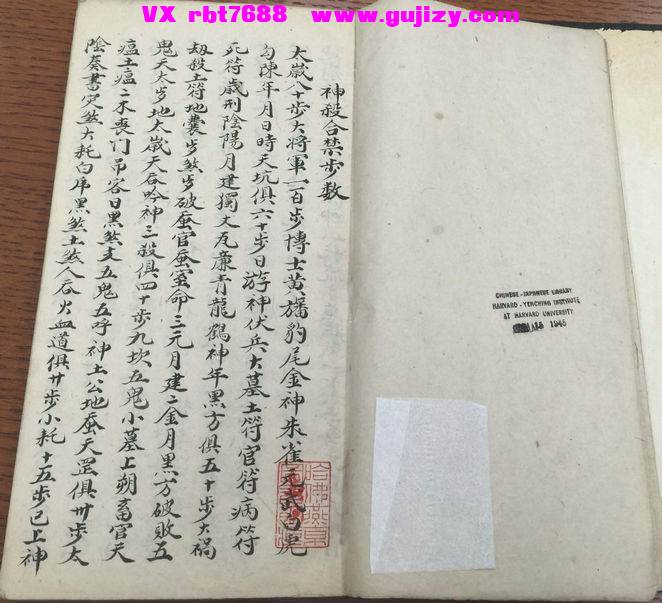 VX rbt7688 www.gujizy.com
神殺合禁步数
太歲八十步大将軍一百步博士黄旛豹尾金神朱雀元武白虎
勾陳年月日時天坑俱六十步日游神伏兵大墓土符官符病符
死符歲刑陰陽月建獨火瓦廉青龍鶴神年黒方俱五十步大禍
刼殺土符地囊步煞步破蚕官蚕室命三元月建二金月黒方破敗五
鬼天太步地太歲天吞吟神三殺俱四十步九坎五鬼小墓上朔畜官天
瘟土瘟二木喪门吊客日黒煞支五鬼五呼神土公地蚕天罡俱卅步太
陰奏書灾煞大耗白虎黒煞土煞人吞火血道俱廿步小耗十五步已上神
CHINESE-JAPANESE LIBRARY
HARVARD-YENCHING INSTITUTE
AT HARVARD UNIVERSITY
1945